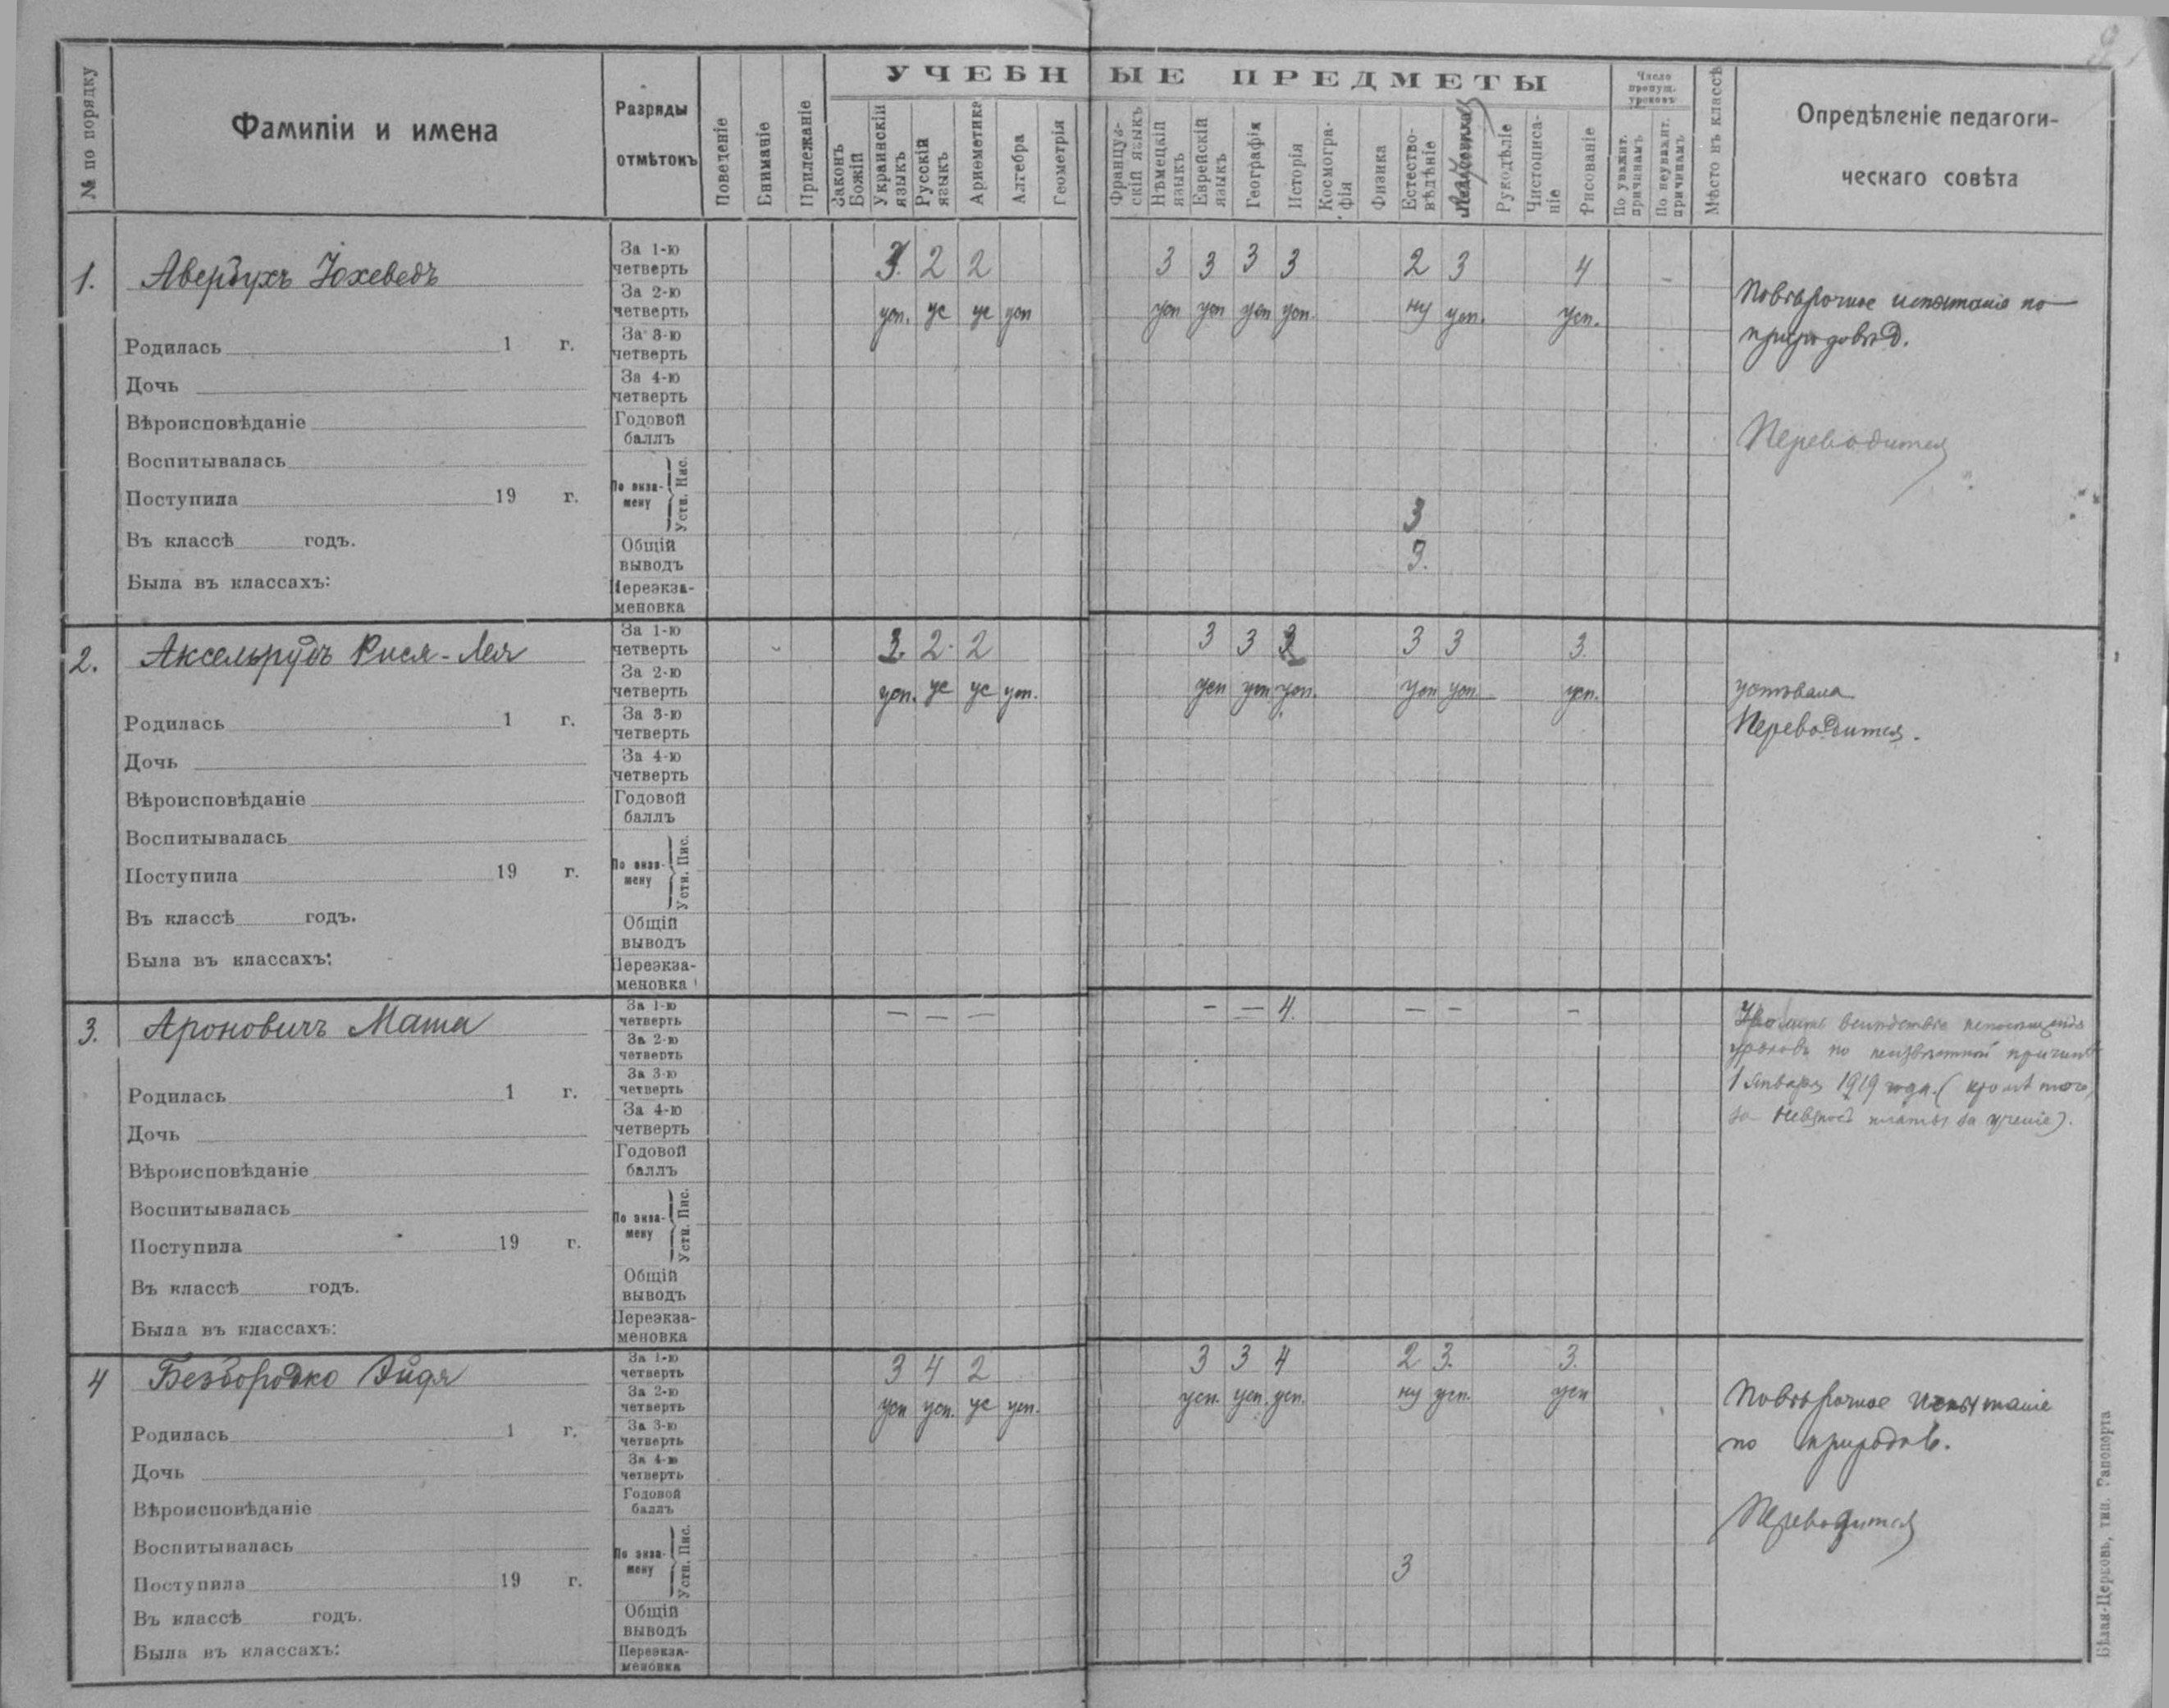 2
УЧЕБНЫЕ ПРЕДМЕТЫ
№ по порядку
Фамиліи и имена
Разряды отмѣтокъ
Поведеніе
Вниманіе
Прилежаніе
Законъ Божій
Украинскій языкъ
Русскій языкъ
Ариѳметика
Алгебра
Геометрія
Француз-скій языкъ
Нѣмецкій языкъ
Еврейскій языкъ
Географія
Исторія
Космогра-фія
Физика
Естество-вѣдѣніе
Рукодѣліе
Чистописа-ніе
Рисованіе
Число пропущ. уроковъ
По уважит. причинамъ
По неуважит. причинамъ
Мѣсто въ классѣ
Опредѣленіе педагоги-
ческаго совѣта
1. Авербухъ Юхеведъ
За 1-ю четверть 3. 2 2 3 3 3 3 2 3 4
За 2-ю четверть усп. ус ус усп усп усп усп усп. ну усп. усп.
Повѣрочное испытаніе по
природовѣд.
Родилась 1 г.
За 3-ю четверть
Дочь
За 4-ю четверть
Вѣроисповѣданіе
Годовой баллъ
Переводится
Воспитывалась
Поступила 19 г.
По экза-мену Устн. Пис.
3
Въ классѣ годъ.
Общій выводъ 3.
Была въ классахъ:
Переэкза-меновка
2. Аксельрудъ Рися-Лея
За 1-ю четверть 3. 2. 2 3 3 3 3 3 3.
За 2-ю четверть усп. ус ус усп. усп усп усп. усп усп усп.
успѣвала
Переводится.
Родилась 1 г.
За 3-ю четверть
Дочь
За 4-ю четверть
Вѣроисповѣданіе
Годовой баллъ
Воспитывалась
Поступила 19 г.
По экза-мену Устн. Пис.
Въ классѣ годъ.
Общій выводъ
Была въ классахъ:
Переэкза-меновка
3. Ароновичъ Маша
За 1-ю четверть — — — — — 4. — — —
За 2-ю четверть
вслѣдствіе непосѣщенія
уроковъ по неизвѣстной причинѣ
1 Января 1919 года. (кромѣ того,
за невзносъ платы за ученіе).
Родилась 1 г.
За 3-ю четверть
Дочь
За 4-ю четверть
Вѣроисповѣданіе
Годовой баллъ
Воспитывалась
Поступила 19 г.
По экза-мену Устн. Пис.
Въ классѣ годъ.
Общій выводъ
Была въ классахъ:
Переэкза-меновка
4 Безбородко Эйдя
За 1-ю четверть 3 4 2 3 3 4 2 3. 3.
За 2-ю четверть усп усп. ус усп. усп. усп. усп. ну усп. усп
Повѣрочное испытаніе
по природов.
Родилась 1 г.
За 3-ю четверть
Дочь
За 4-ю четверть
Вѣроисповѣданіе
Годовой баллъ
Переводится
Воспитывалась
Поступила 19 г.
По экза-мену Устн. Пис.
3
Въ классѣ годъ.
Общій выводъ
Была въ классахъ:
Переэкза-меновка
Бѣлая-Церковь, тип. Рапопорта